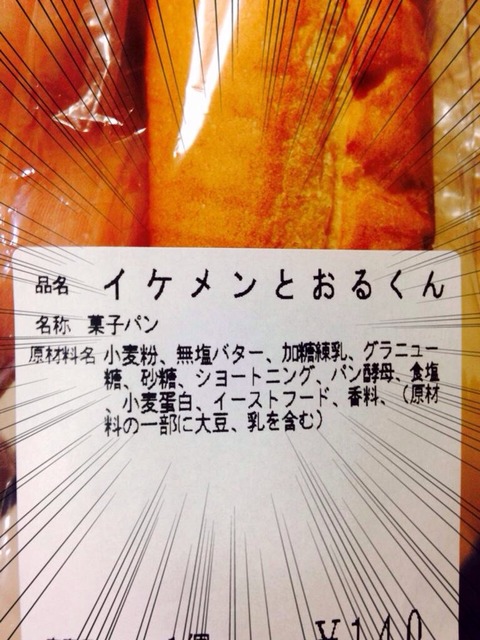 品名 イケメンとおるくん
名称 菓子パン
原材料名 小麦粉、無塩バター、加糖練乳、グラニュー
糖、砂糖、ショートニング、パン酵母、食塩
、小麦蛋白、イーストフード、香料、（原材
料の一部に大豆、乳を含む）
1個 ¥140